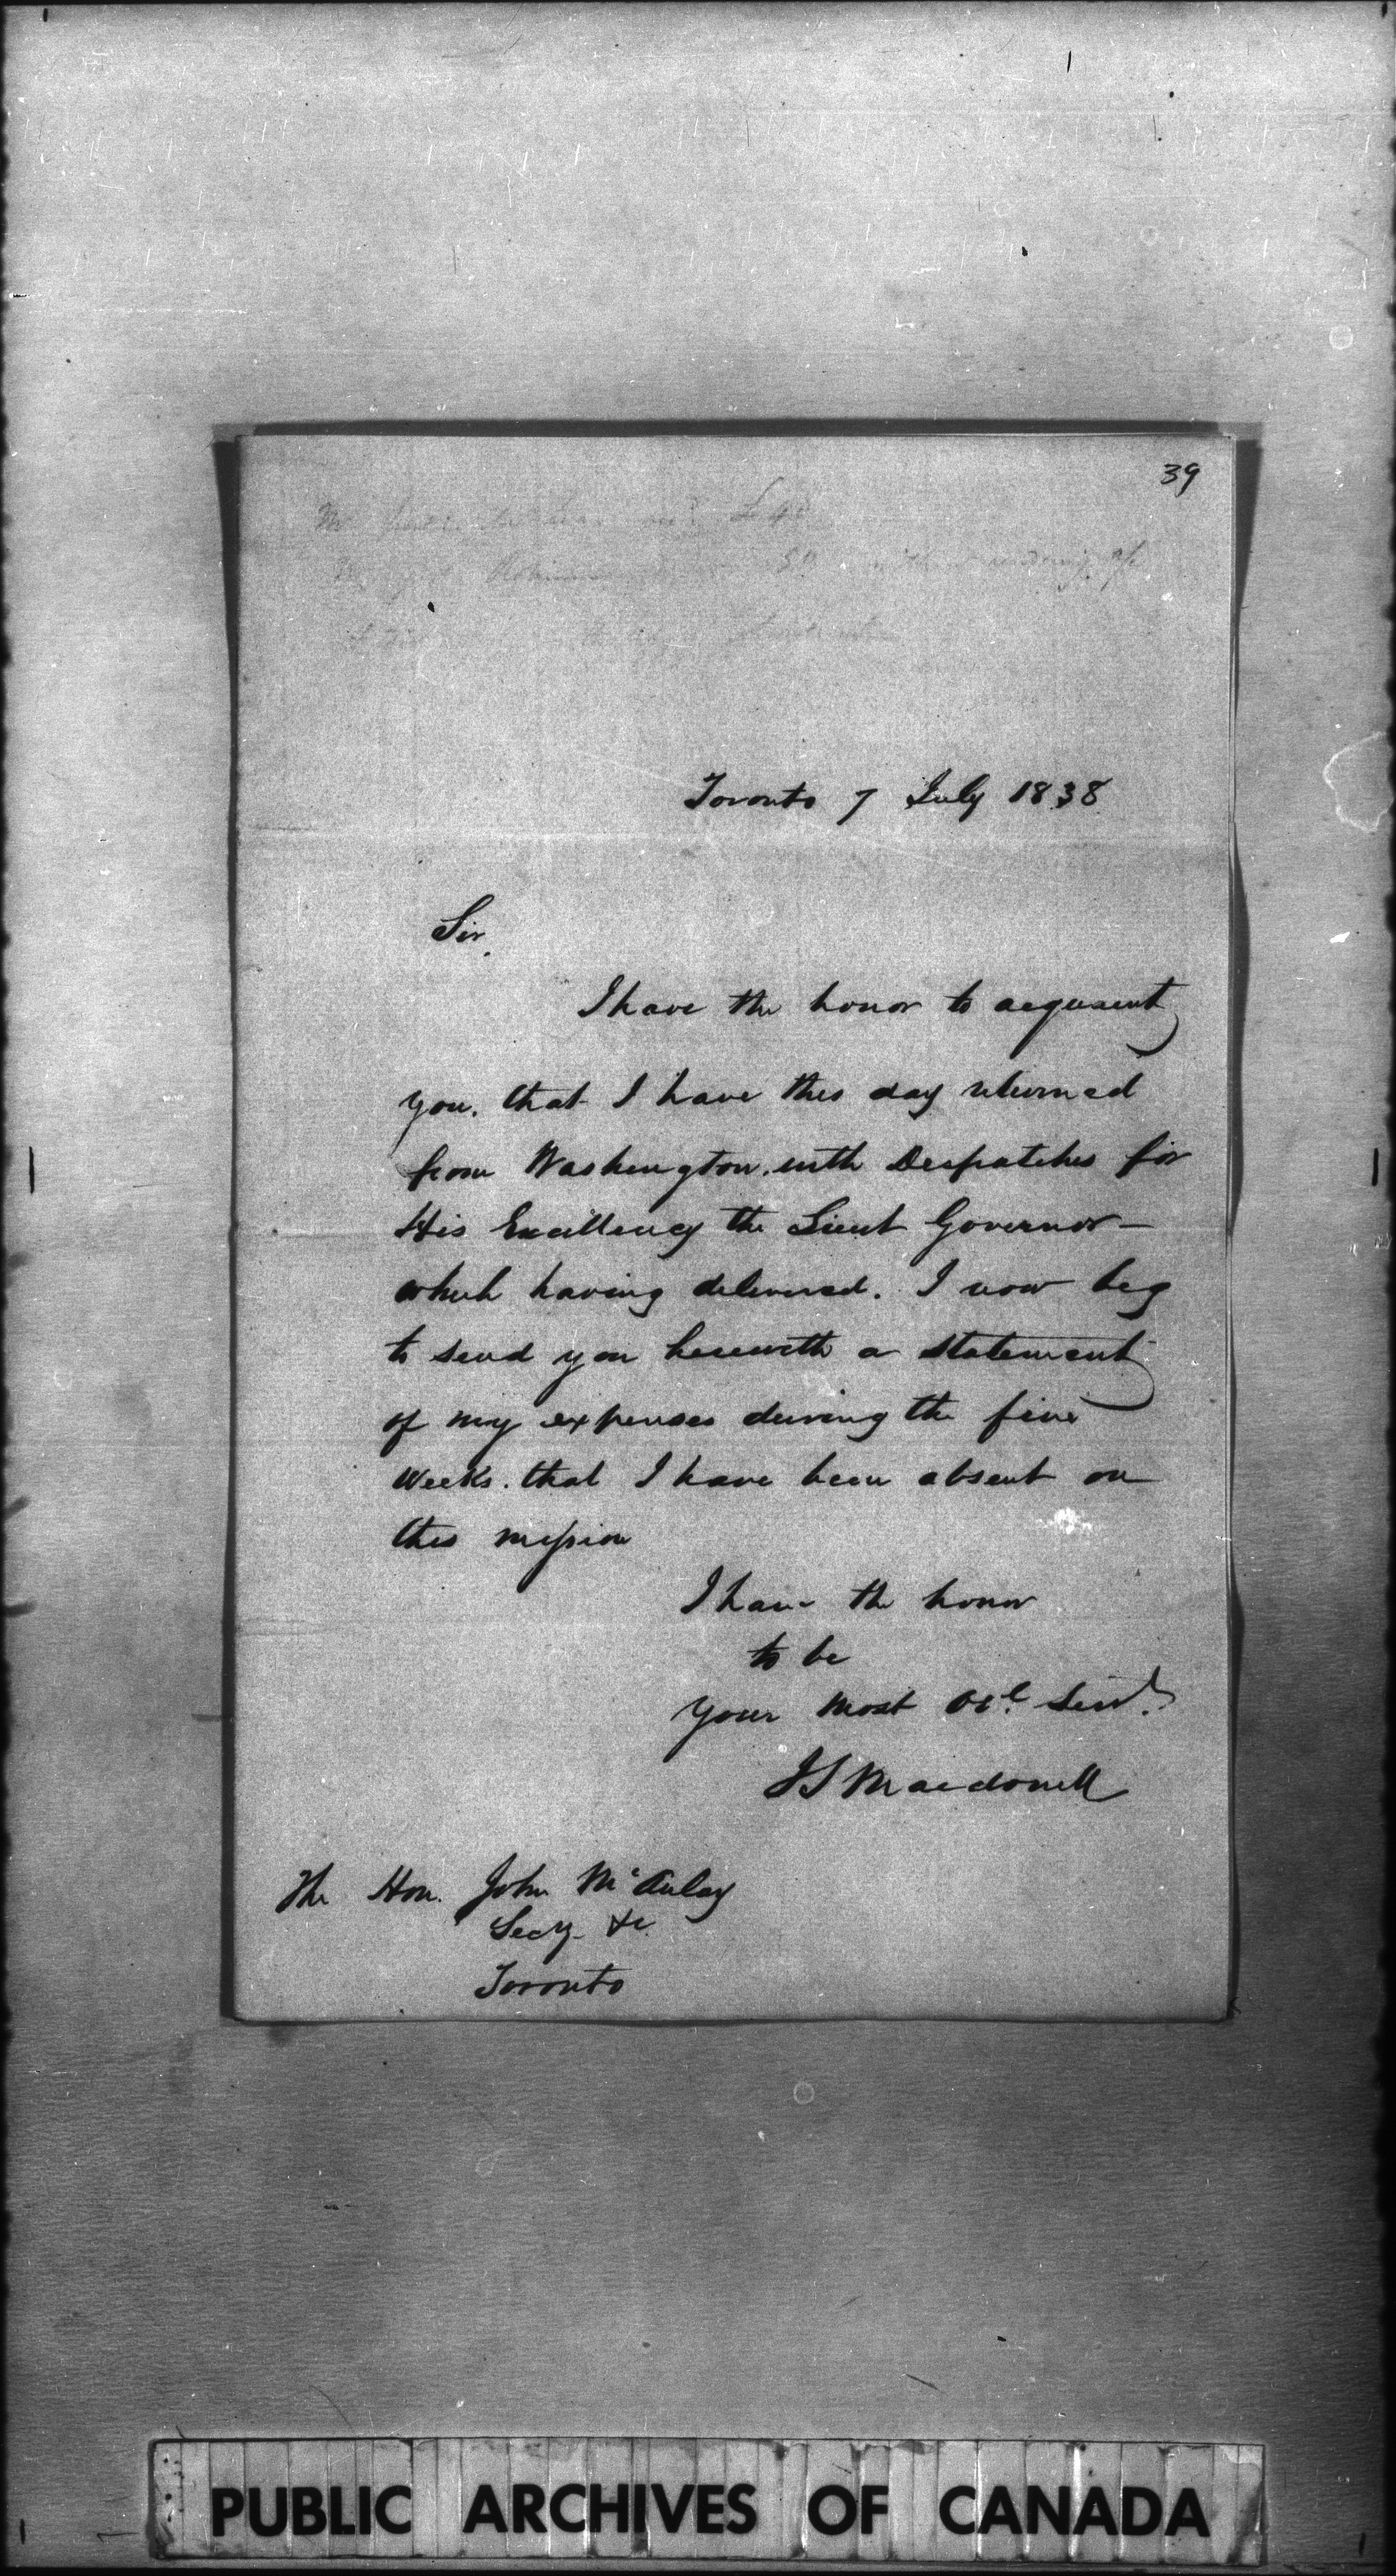 39
£4
Toronto 7 July 1838
Sir,
I have the honor to acquaint
you. that I have this day returned
from Washington. with Despatches for
His Excellency the Lieut Governor —
which having delivered. I now beg
to send you herewith a statement
of my expenses during the five
Weeks. that I have been absent on
this mission
I have the honor
to be
Your most Obt. Servt.
JS Macdonell
The Hon. John McAulay
Secy. &c.
Toronto
PUBLIC ARCHIVES OF CANADA